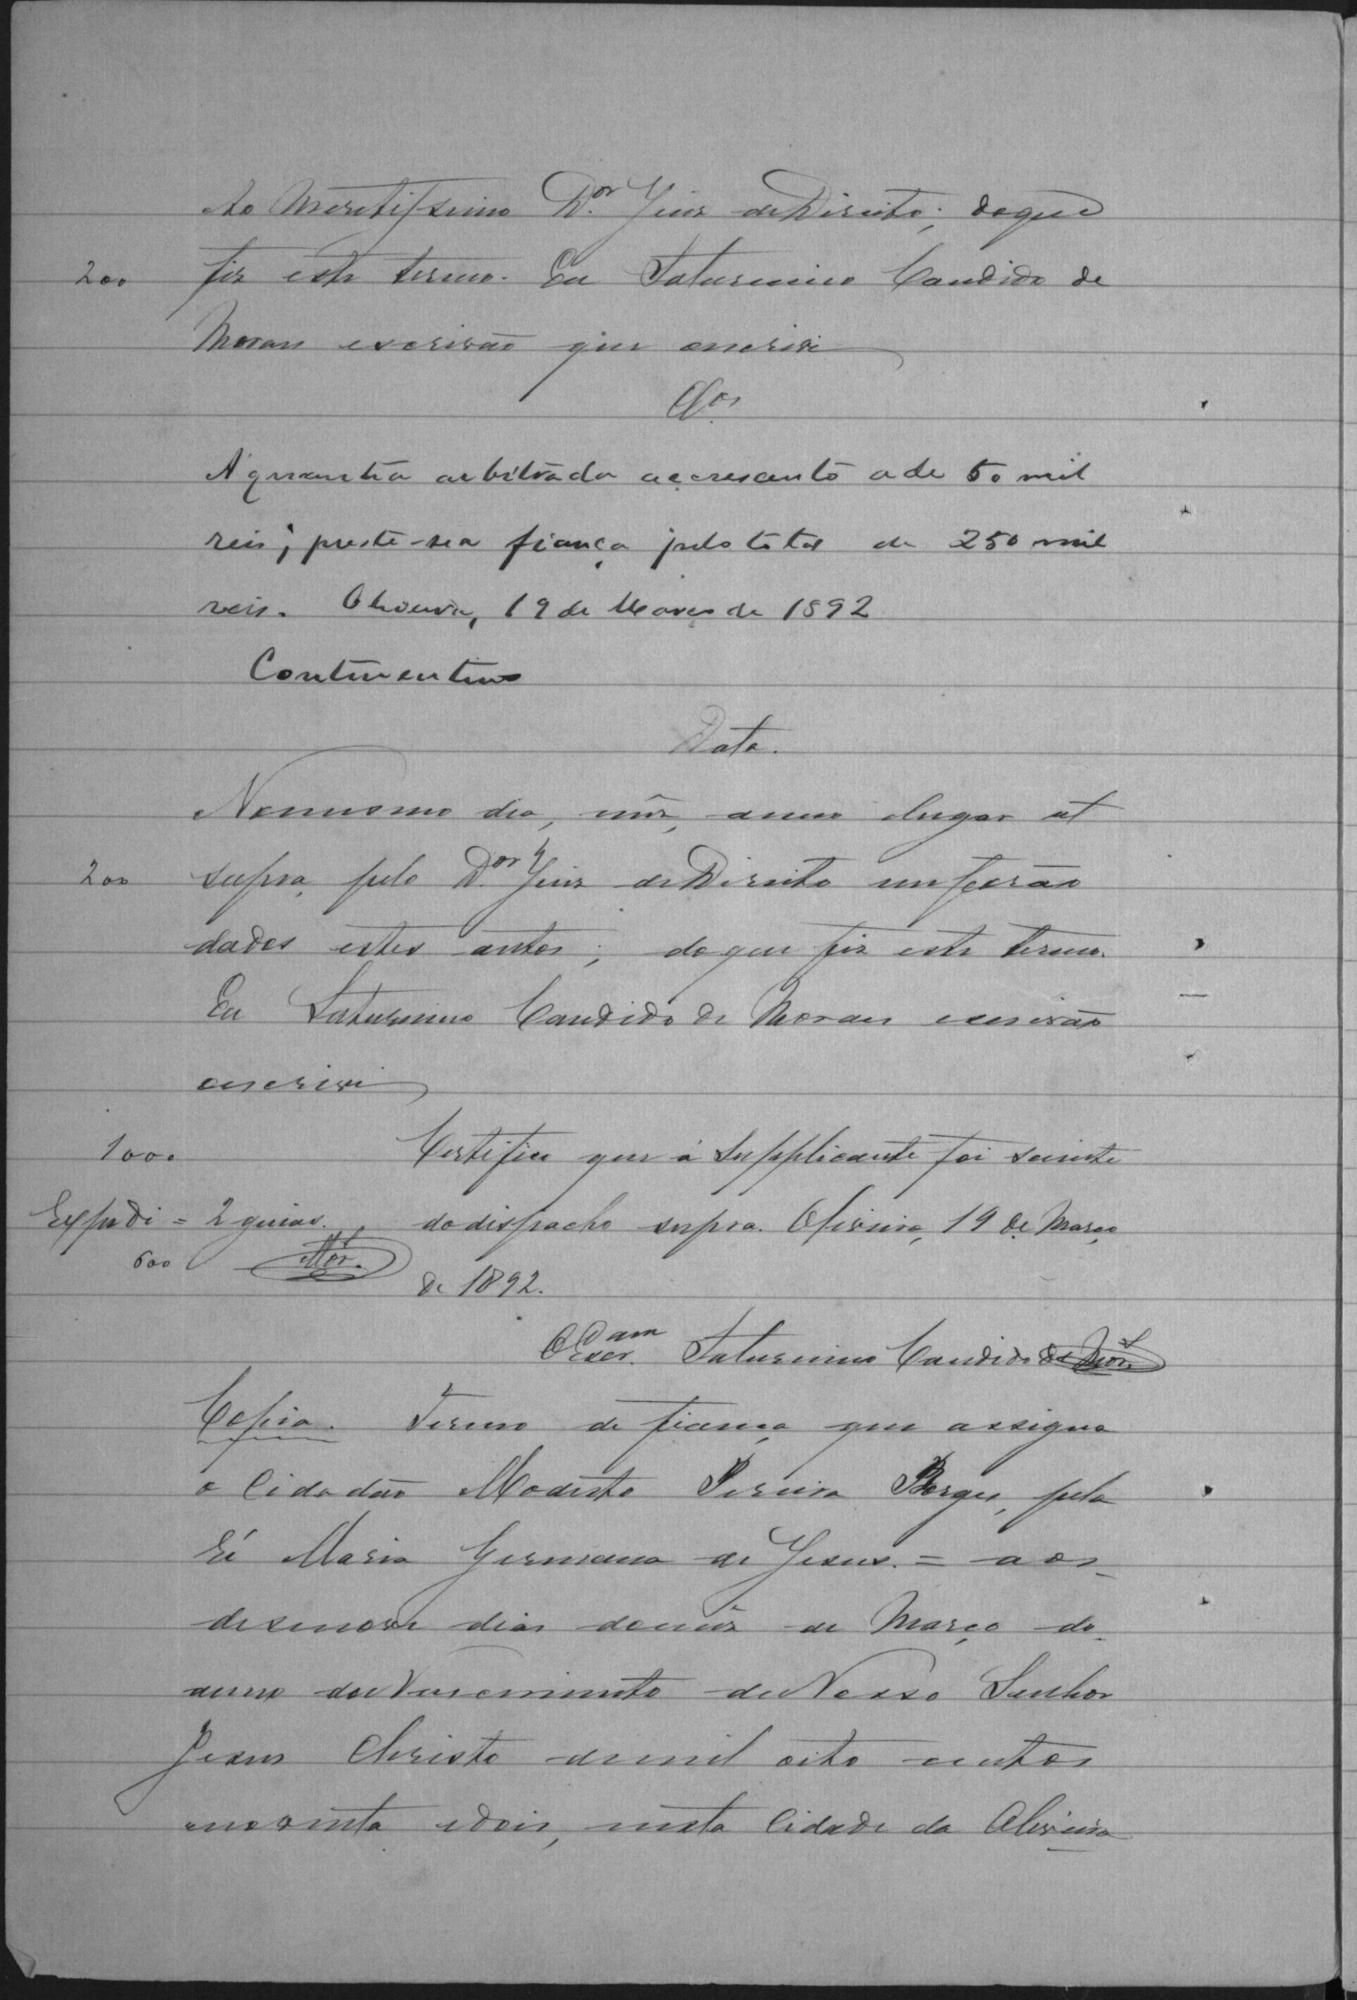 Ao Meretissimo D.or Juiz de Direito; doque
200 fiz este termo. Eu Saturnino Candido de
Moraes escrivão que escrevi
Clos
A quantia arbitrada accrescento a de 50 mil
reis; preste-se a fiança pelo total de 250 mil
reis. Oliveira, 19 de Março de 1892
Continentino
Data.
Nomesmo dia, mêz, anno e lugar ut
200 supra, pelo D.or Juiz de Direito me forão
dados estes autos; do que fiz este termo.
Eu Saturnino Candido de Moraes escrivão
escrevi
1000 Certifico que a Supplicante foi sciente
Expedi = 2 guias. do dispacho supra. Oliveira, 19 de Março
600 Mor.
de 1892.
O Escr.am Saturnino Candido de Mor.
Copia. Termo de fiança, que assigna
o Cidadão Modesto Pereira Borges, pela
Ré Maria Germana de Jesus. = aos
desenove dias do mêz de Março do
anno do Nascimento de Nosso Senhor
Jesus Christo de mil oito centos
noventa e dois, nesta Cidade da Oliveira